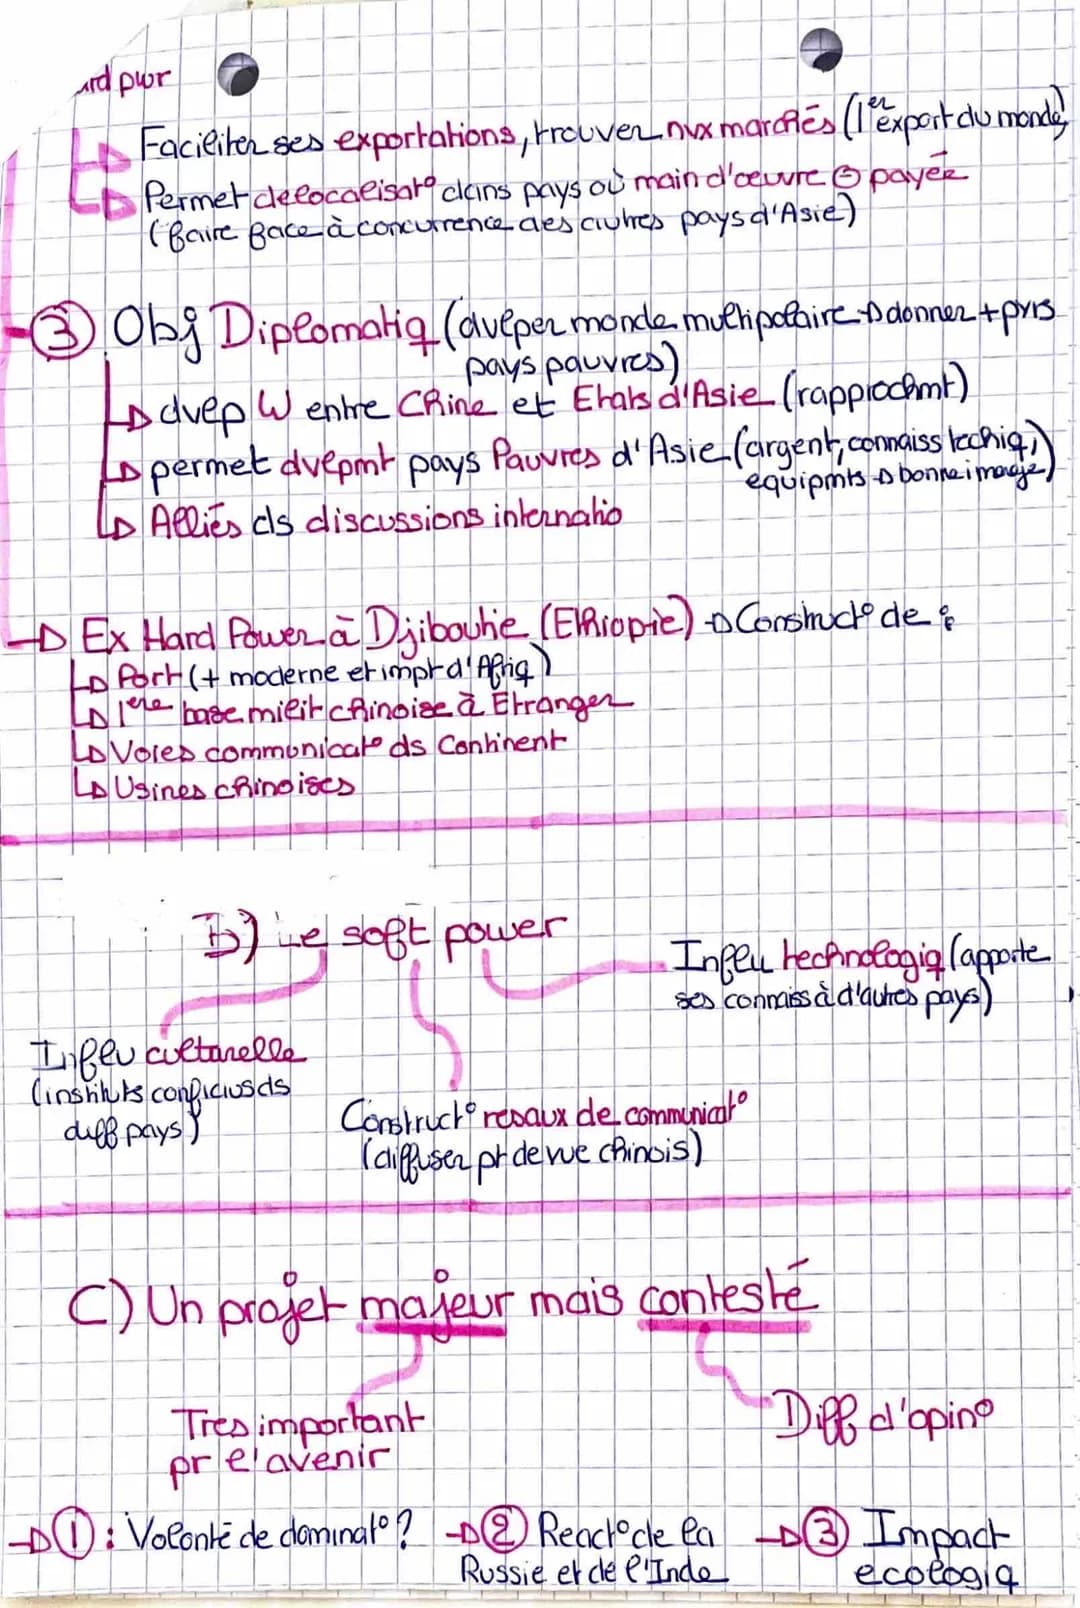 ard pwr
Faciliter ses exportations, trouver nvx marchés (1er export du monde)
Permet delocalisat° dans pays où main d'œuvre ⊖ payée
(faire face à concurrence des autres pays d'Asie)
③ Obj Diplomatiq (dvlper monde multipolaire → donner + pvrs
pays pauvres)
→ dvep W entre Chine et Etats d'Asie (rapprochmt)
→ permet dvlpmt pays Pauvres d'Asie (argent, connaiss techniq,
equipmts → bonne image)
→ Alliés ds discussions internatio
→ Ex Hard Power à Djiboutie (Ethiopie) → Construct° de :
→ Port (+ moderne et impt d'Afriq)
→ 1ère base milit chinoise à Etranger
→ Voies communicat° ds Continent
→ Usines chinoises
B) Le soft power
Influ technologiq (apporte
ses connaiss à d'autres pays)
Influ culturelle
(instituts conficius ds
diff pays)
Construct° resaux de communicat°
(diffuser pt de vue chinois)
C) Un projet majeur mais contesté
Tres important
pr l'avenir
Diff d'opin°
→ ① : Volonté de dominat° ? → ② React° de la → ③ Impact
Russie et de l'Inde ecologiq